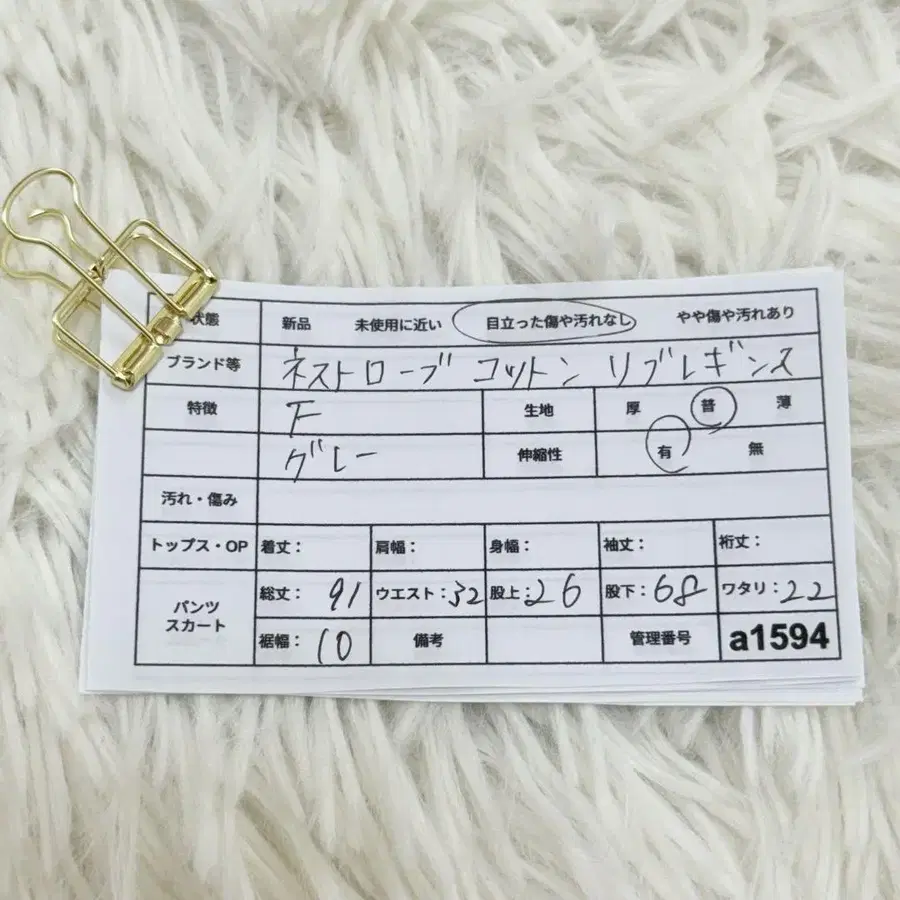 状態 新品 未使用に近い 目立った傷や汚れなし やや傷や汚れあり
ブランド等 ネストローブ コットン リブレギンス
特徴 F 生地 厚 普 薄
グレー 伸縮性 有 無
汚れ・傷み
トップス・OP 着丈： 肩幅： 身幅： 袖丈： 裄丈：
パンツ スカート 総丈： 91 ウエスト：32 股上：26 股下：68 ワタリ：22
裾幅： 10 備考 管理番号 a1594